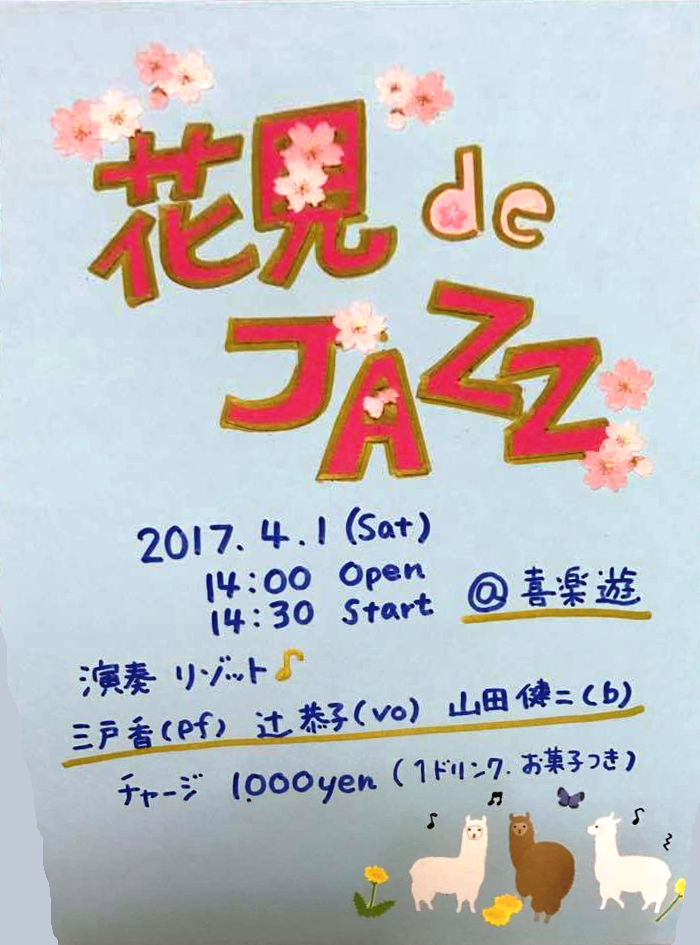 花見 de
JAZZ
2017.4.1 (Sat)
14:00 Open
14:30 Start
@喜楽遊
演奏 リゾット♪
三戸香(pf) 辻恭子(vo) 山田健二(b)
チャージ 1,000yen (1ドリンク.お菓子つき)